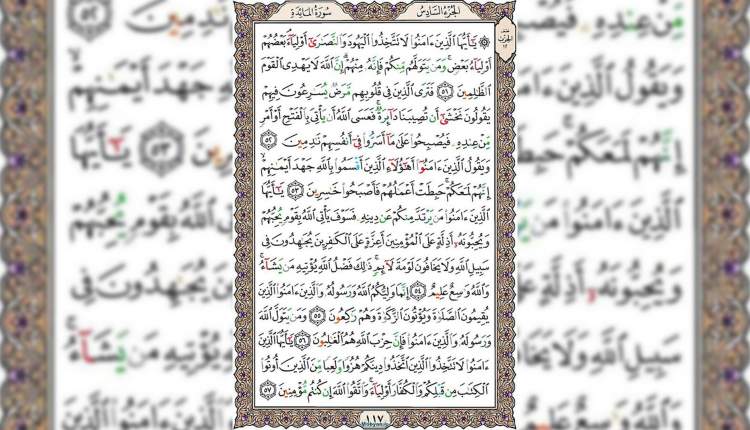 سُورَةُ المَائـِدَةِ الجُزْءُ السَّادِسُ
يَـٰٓأَيُّهَا ٱلَّذِينَ ءَامَنُوا۟ لَا تَتَّخِذُوا۟ ٱلْيَهُودَ وَٱلنَّصَـٰرَىٰٓ أَوْلِيَآءَ ۘ بَعْضُهُمْ
أَوْلِيَآءُ بَعْضٍ ۚ وَمَن يَتَوَلَّهُم مِّنكُمْ فَإِنَّهُۥ مِنْهُمْ ۗ إِنَّ ٱللَّهَ لَا يَهْدِى ٱلْقَوْمَ
ٱلظَّـٰلِمِينَ ﴿٥١﴾ فَتَرَى ٱلَّذِينَ فِى قُلُوبِهِم مَّرَضٌ يُسَـٰرِعُونَ فِيهِمْ
يَقُولُونَ نَخْشَىٰٓ أَن تُصِيبَنَا دَآئِرَةٌ ۚ فَعَسَى ٱللَّهُ أَن يَأْتِىَ بِٱلْفَتْحِ أَوْ أَمْرٍ
مِّنْ عِندِهِۦ فَيُصْبِحُوا۟ عَلَىٰ مَآ أَسَرُّوا۟ فِىٓ أَنفُسِهِمْ نَـٰدِمِينَ ﴿٥٢﴾
وَيَقُولُ ٱلَّذِينَ ءَامَنُوٓا۟ أَهَـٰٓؤُلَآءِ ٱلَّذِينَ أَقْسَمُوا۟ بِٱللَّهِ جَهْدَ أَيْمَـٰنِهِمْ ۙ
إِنَّهُمْ لَمَعَكُمْ ۚ حَبِطَتْ أَعْمَـٰلُهُمْ فَأَصْبَحُوا۟ خَـٰسِرِينَ ﴿٥٣﴾ يَـٰٓأَيُّهَا
ٱلَّذِينَ ءَامَنُوا۟ مَن يَرْتَدَّ مِنكُمْ عَن دِينِهِۦ فَسَوْفَ يَأْتِى ٱللَّهُ بِقَوْمٍ يُحِبُّهُمْ
وَيُحِبُّونَهُۥٓ أَذِلَّةٍ عَلَى ٱلْمُؤْمِنِينَ أَعِزَّةٍ عَلَى ٱلْكَـٰفِرِينَ يُجَـٰهِدُونَ فِى
سَبِيلِ ٱللَّهِ وَلَا يَخَافُونَ لَوْمَةَ لَآئِمٍ ۚ ذَٰلِكَ فَضْلُ ٱللَّهِ يُؤْتِيهِ مَن يَشَآءُ ۚ
وَٱللَّهُ وَٰسِعٌ عَلِيمٌ ﴿٥٤﴾ إِنَّمَا وَلِيُّكُمُ ٱللَّهُ وَرَسُولُهُۥ وَٱلَّذِينَ ءَامَنُوا۟ ٱلَّذِينَ
يُقِيمُونَ ٱلصَّلَوٰةَ وَيُؤْتُونَ ٱلزَّكَوٰةَ وَهُمْ رَٰكِعُونَ ﴿٥٥﴾ وَمَن يَتَوَلَّ ٱللَّهَ
وَرَسُولَهُۥ وَٱلَّذِينَ ءَامَنُوا۟ فَإِنَّ حِزْبَ ٱللَّهِ هُمُ ٱلْغَـٰلِبُونَ ﴿٥٦﴾ يَـٰٓأَيُّهَا ٱلَّذِينَ
ءَامَنُوا۟ لَا تَتَّخِذُوا۟ ٱلَّذِينَ ٱتَّخَذُوا۟ دِينَكُمْ هُزُوًا وَلَعِبًا مِّنَ ٱلَّذِينَ أُوتُوا۟
ٱلْكِتَـٰبَ مِن قَبْلِكُمْ وَٱلْكُفَّارَ أَوْلِيَآءَ ۚ وَٱتَّقُوا۟ ٱللَّهَ إِن كُنتُم مُّؤْمِنِينَ ﴿٥٧﴾
١١٧